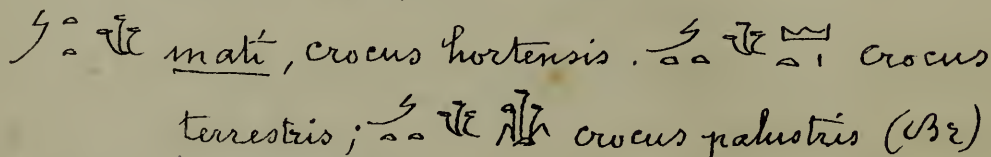 matí, crocus hortensis. crocus
terrestris; crocus palustris (Br)